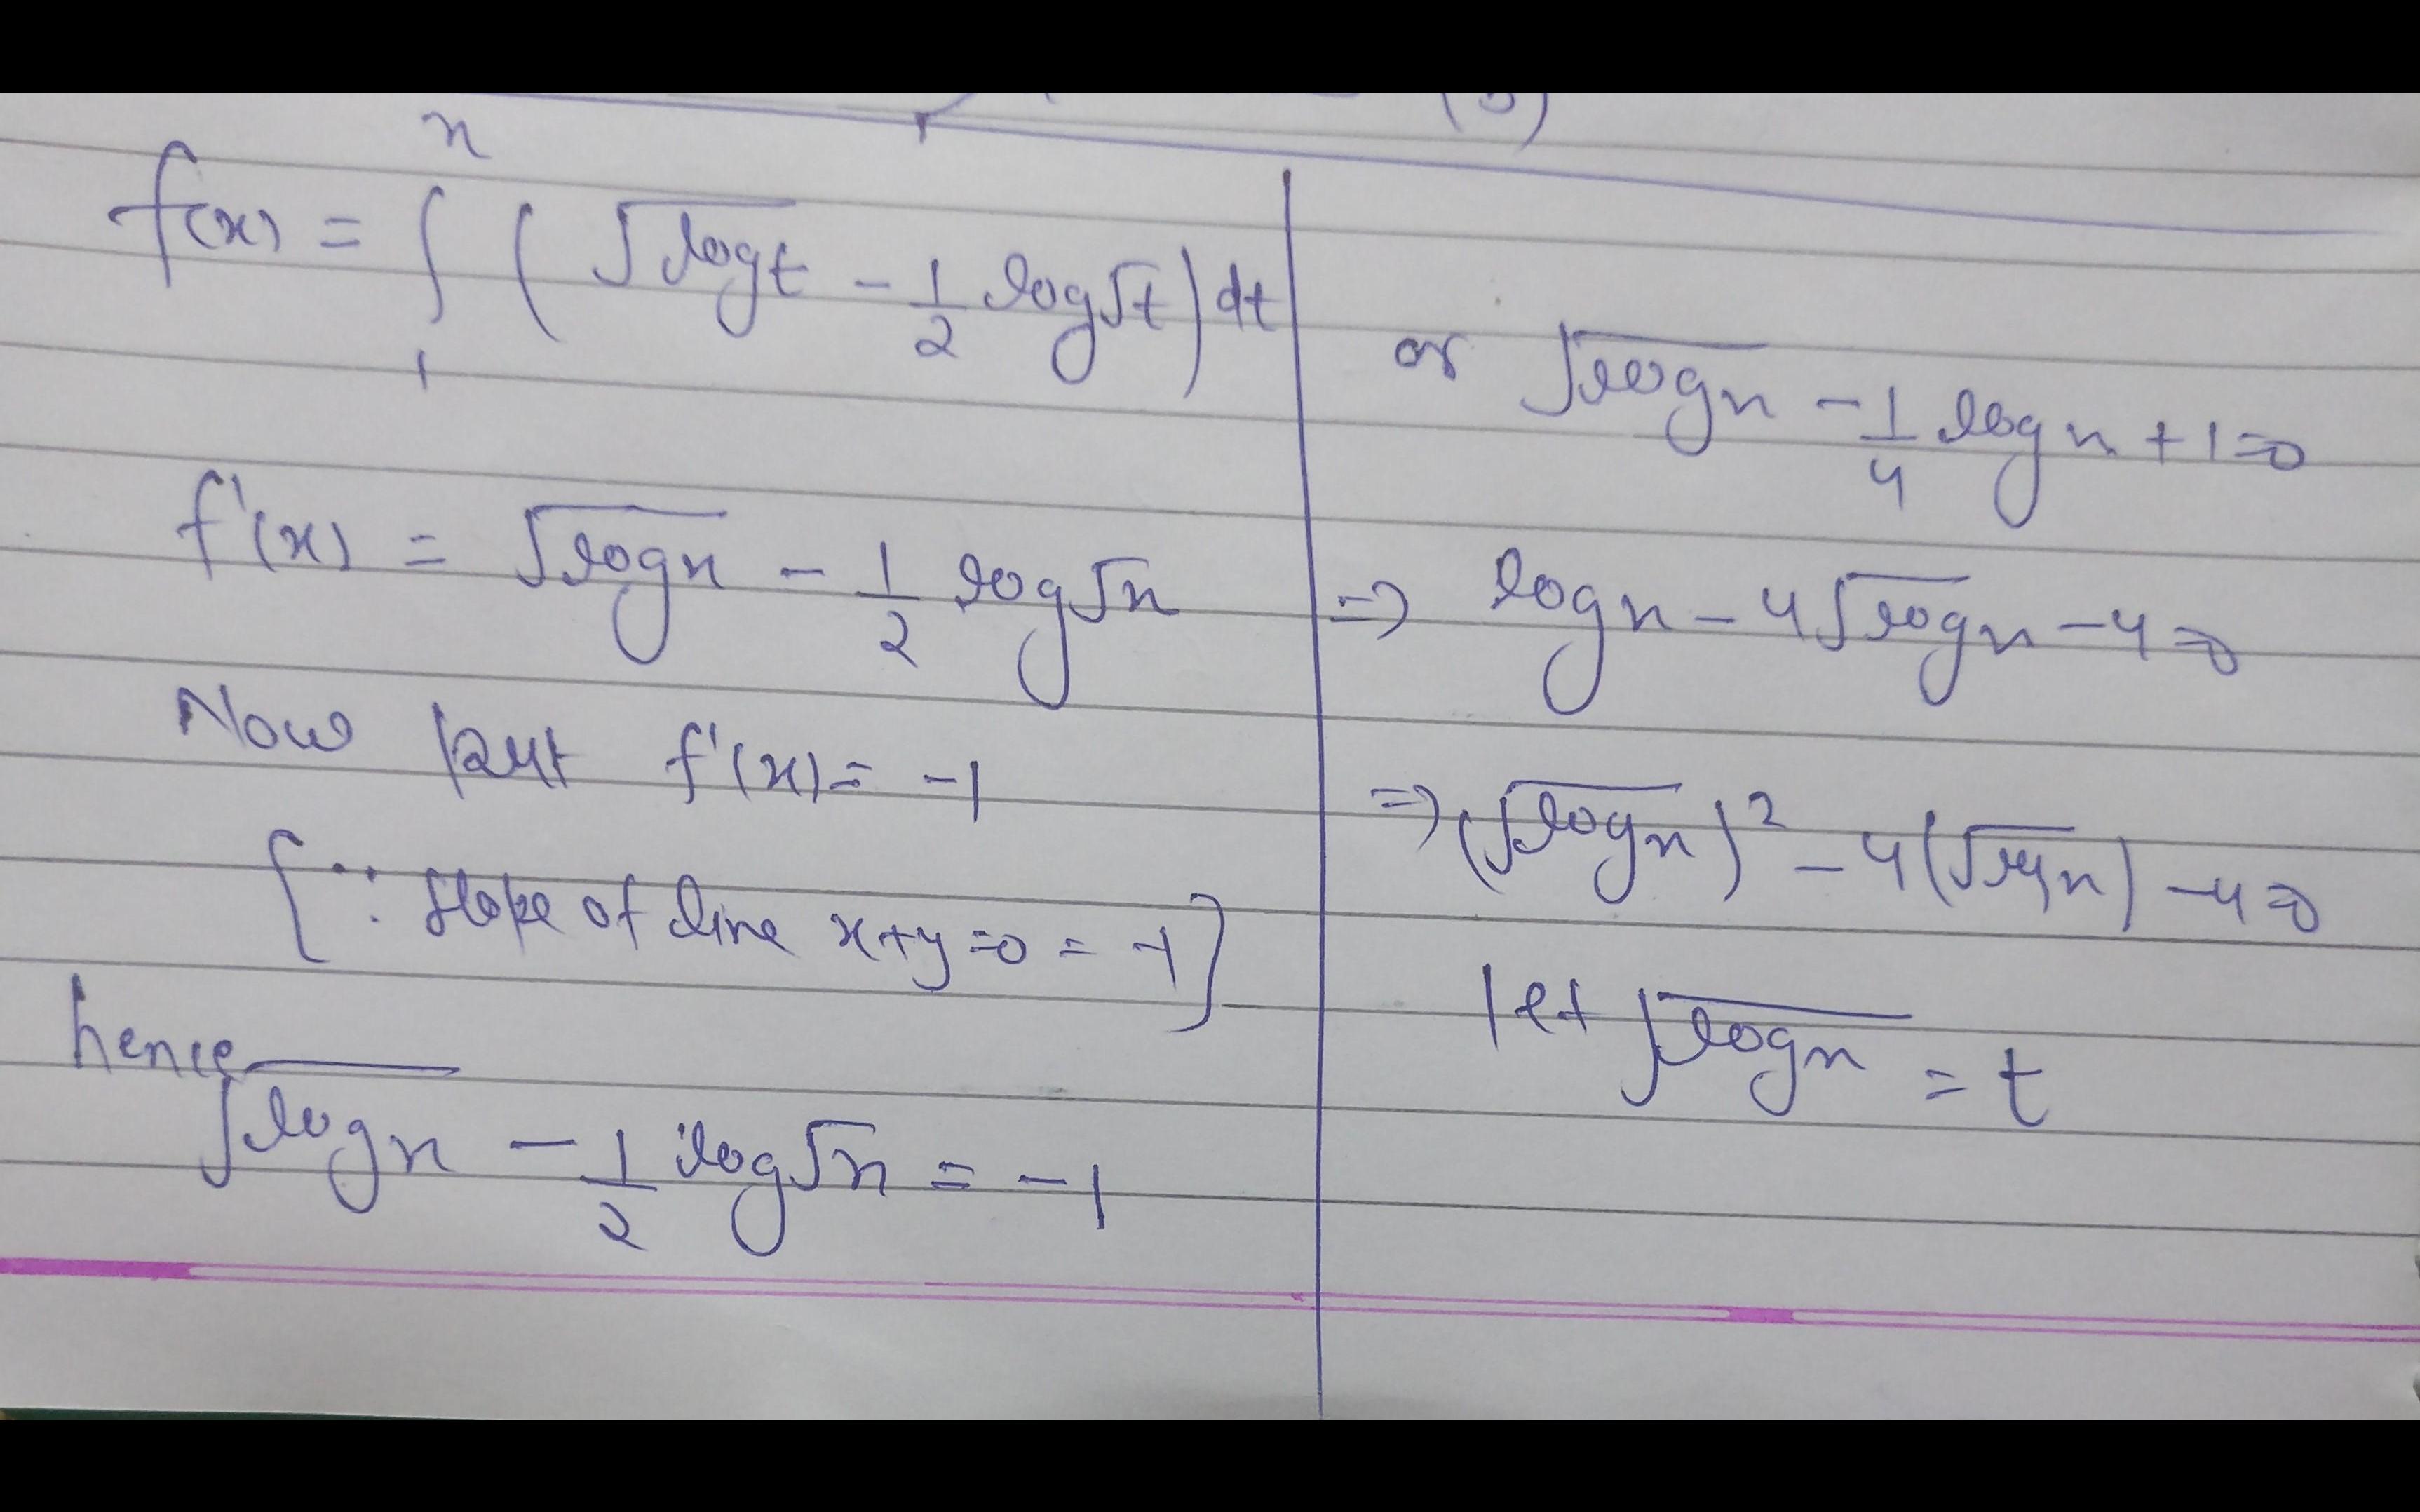 f(x) = ∫₁ˣ (√log t - 1/2 log √t) dt
f'(x) = √log x - 1/2 log √x
Now put f'(x) = -1
{∵ slope of line x+y=0 = -1}
hence
√log x - 1/2 log √x = -1
or √log x - 1/4 log x + 1 = 0
⇒ log x - 4√log x - 4 = 0
⇒ (√log x)² - 4(√log x) - 4 = 0
let √log x = t